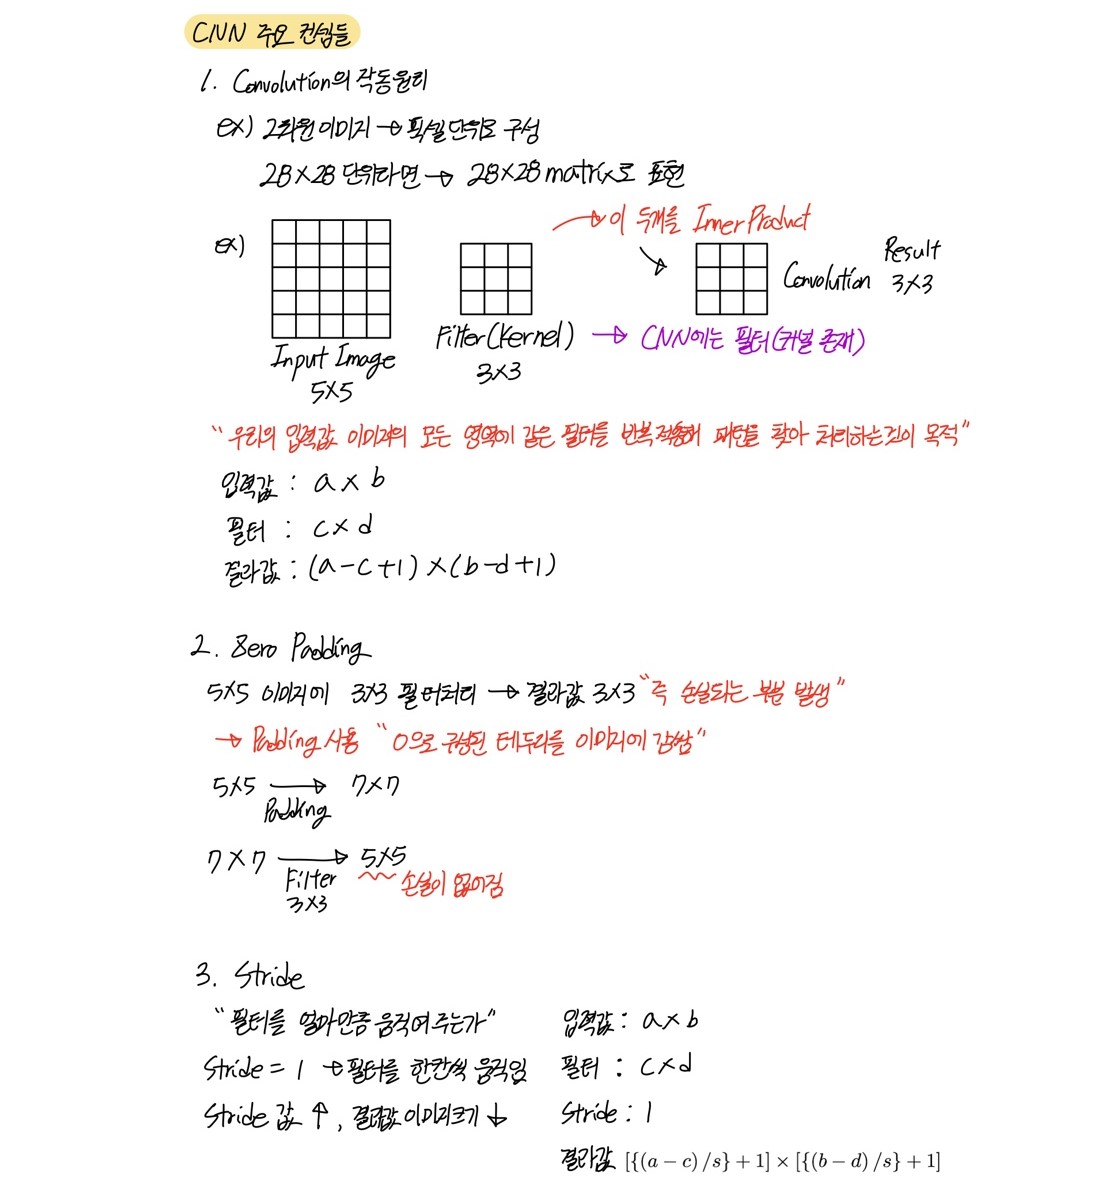 CNN 주요 컨셉들
1. Convolution의 작동원리
ex) 2차원 이미지 → 픽셀단위로 구성
28×28 단위라면 → 28×28 matrix로 표현
→ 이 두개를 Inner Product
ex)
Input Image
5×5
Filter(Kernel)
3×3
Convolution
Result
3×3
→ CNN에는 필터(커널 존재)
"우리의 입력값 이미지의 모든 영역에 같은 필터를 반복적용해 패턴을 찾아 처리하는것이 목적"
입력값 : a × b
필터 : c × d
결과값 : (a-c+1) × (b-d+1)
2. Zero Padding
5×5 이미지에 3×3 필터처리 → 결과값 3×3 "즉 손실되는 부분 발생"
→ Padding 사용 "0으로 구성된 테두리를 이미지에 감쌈"
5×5 → 7×7
Padding
7×7 → 5×5
Filter
3×3
손실이 없어짐
3. Stride
"필터를 얼마만큼 움직여 주는가"
Stride = 1 → 필터를 한칸씩 움직임
Stride 값 ↑, 결과값 이미지크기 ↓
입력값 : a×b
필터 : c×d
Stride : 1
결과값 [{(a − c) /s} + 1] × [{(b − d) /s} + 1]